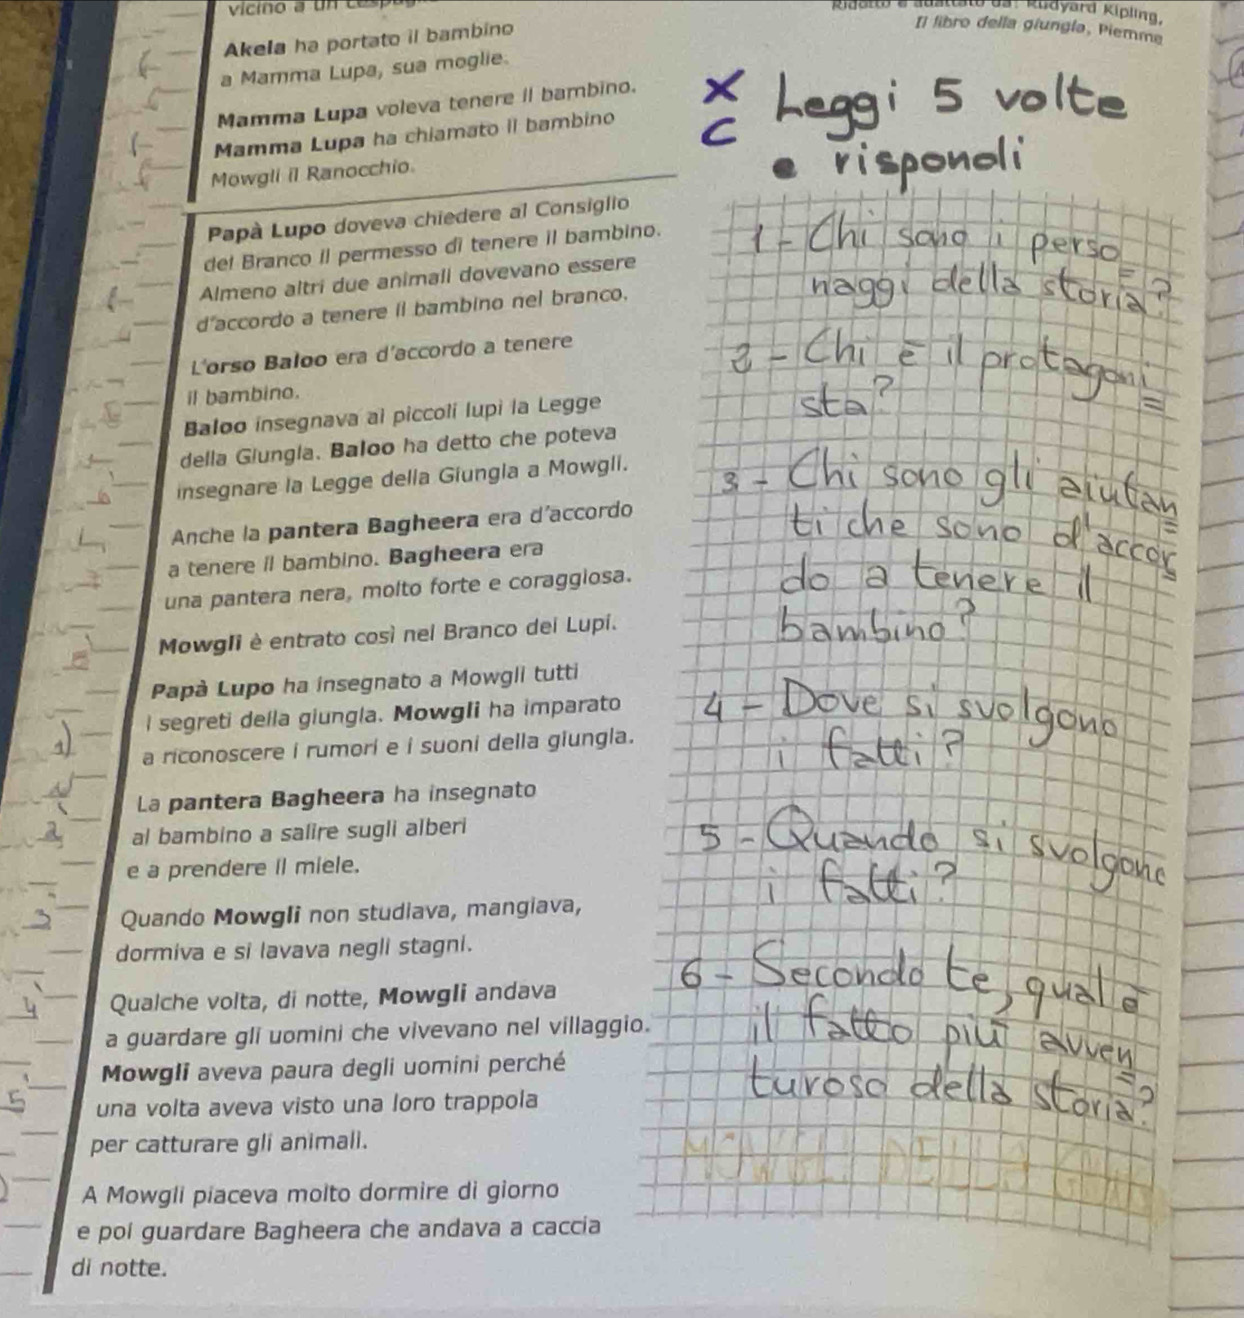 vicino a un
Akela ha portato il bambino
a Mamma Lupa, sua moglie.
Mamma Lupa voleva tenere il bambino.
Mamma Lupa ha chiamato il bambino
Mowgli il Ranocchio.
Papà Lupo doveva chiedere al Consiglio
del Branco il permesso di tenere il bambino.
Almeno altri due animali dovevano essere
d'accordo a tenere il bambino nel branco.
L'orso Baloo era d'accordo a tenere
il bambino.
Baloo insegnava ai piccoli lupi la Legge
della Giungla. Baloo ha detto che poteva
insegnare la Legge della Giungla a Mowgli.
Anche la pantera Bagheera era d'accordo
a tenere il bambino. Bagheera era
una pantera nera, molto forte e coraggiosa.
Mowgli è entrato così nel Branco dei Lupi.
Papà Lupo ha insegnato a Mowgli tutti
i segreti della giungla. Mowgli ha imparato
a riconoscere i rumori e i suoni della giungla.
La pantera Bagheera ha insegnato
al bambino a salire sugli alberi
e a prendere il miele.
Quando Mowgli non studiava, mangiava,
dormiva e si lavava negli stagni.
Qualche volta, di notte, Mowgli andava
a guardare gli uomini che vivevano nel villaggio.
Mowgli aveva paura degli uomini perché
una volta aveva visto una loro trappola
per catturare gli animali.
A Mowgli piaceva molto dormire di giorno
e poi guardare Bagheera che andava a caccia
di notte.
Rudyard Kipling,
Il libro della giungla, Piemme
X Leggi 5 volte
C e rispondi
1- Chi sono i perso=
naggi della storia?
2- Chi è il protagoni=
sta?
3- Chi sono gli aiutan=
ti che sono d'accor=
do a tenere il
bambino?
4- Dove si svolgono
i fatti?
5- Quando si svolgono
i fatti?
6- Secondo te, qual è
il fatto più avven=
turoso della storia?